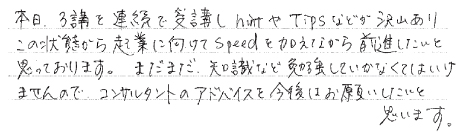 本日、3講を連続で受講しhintやTipsなどが沢山あり
この状態から起業に向けてSpeedを加えながら前進したいと
思っております。まだまだ、知識など勉強していかなくてはいけ
ませんので、コンサルタントのアドバイスを今後はお願いしたいと
思います。